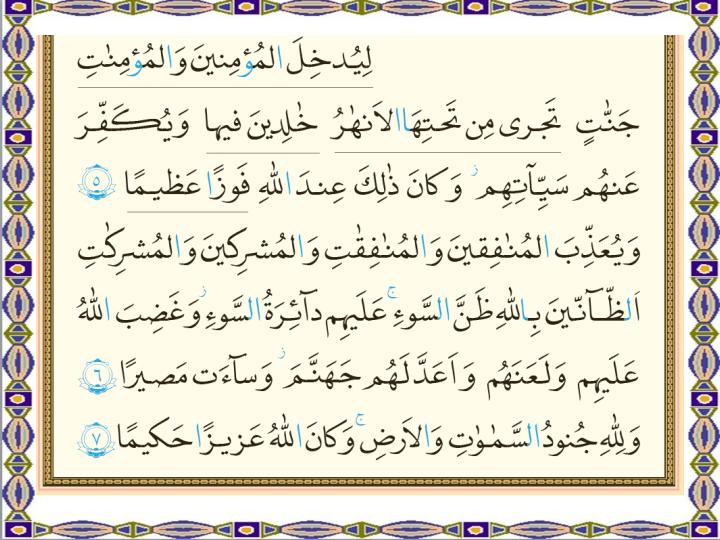 لِيُدخِلَ المُؤمِنينَ وَالمُؤمِنٰتِ
جَنّٰتٍ تَجرى مِن تَحتِهَا الاَنهٰرُ خٰلِدينَ فيها وَيُكَفِّرَ
عَنهُم سَيِّـٔاتِهِم ۚ وَكانَ ذٰلِكَ عِندَ اللهِ فَوزًا عَظيمًا ﴿٥﴾
وَيُعَذِّبَ المُنٰفِقينَ وَالمُنٰفِقٰتِ وَالمُشرِكينَ وَالمُشرِكٰتِ
اَلظّآنّينَ بِاللهِ ظَنَّ السَّوءِ ۚ عَلَيهِم دآئِرَةُ السَّوءِ ۖ وَغَضِبَ اللهُ
عَلَيهِم وَلَعَنَهُم وَاَعَدَّ لَهُم جَهَنَّمَ ۖ وَسآءَت مَصيرًا ﴿٦﴾
وَلِلّٰهِ جُنودُ السَّمٰوٰتِ وَالاَرضِ ۚ وَكانَ اللهُ عَزيزًا حَكيمًا ﴿٧﴾